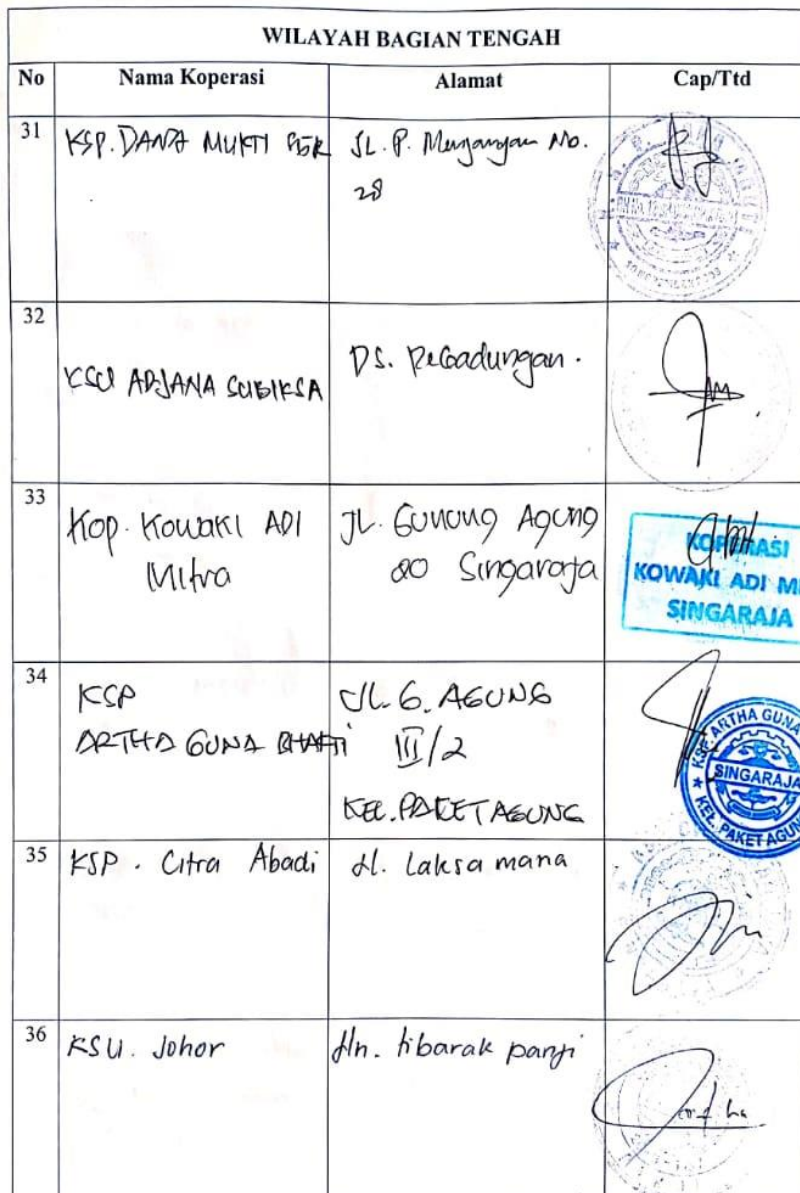 WILAYAH BAGIAN TENGAH
No Nama Koperasi Alamat Cap/Ttd
31 KSP. DANA MUKTI JL. P. Menjangan No.
28
32
KSU ADJANA SUBIKSA DS. Pegadungan.
33
Kop. Kowaki ADI JL. Gunung Agung
Mitra 20 Singaraja
KOPERASI
KOWAKI ADI MI
SINGARAJA
34
KSP JL. G. AGUNG
ARTHA GUNA BHAKTI III/2
KEL. PAKET AGUNG
KSP. ARTHA GUNA
SINGARAJA
KEL. PAKET AGUN
35 KSP. Citra Abadi Jl. Laksamana
36 KSU. Johor Jln. tibarak panji